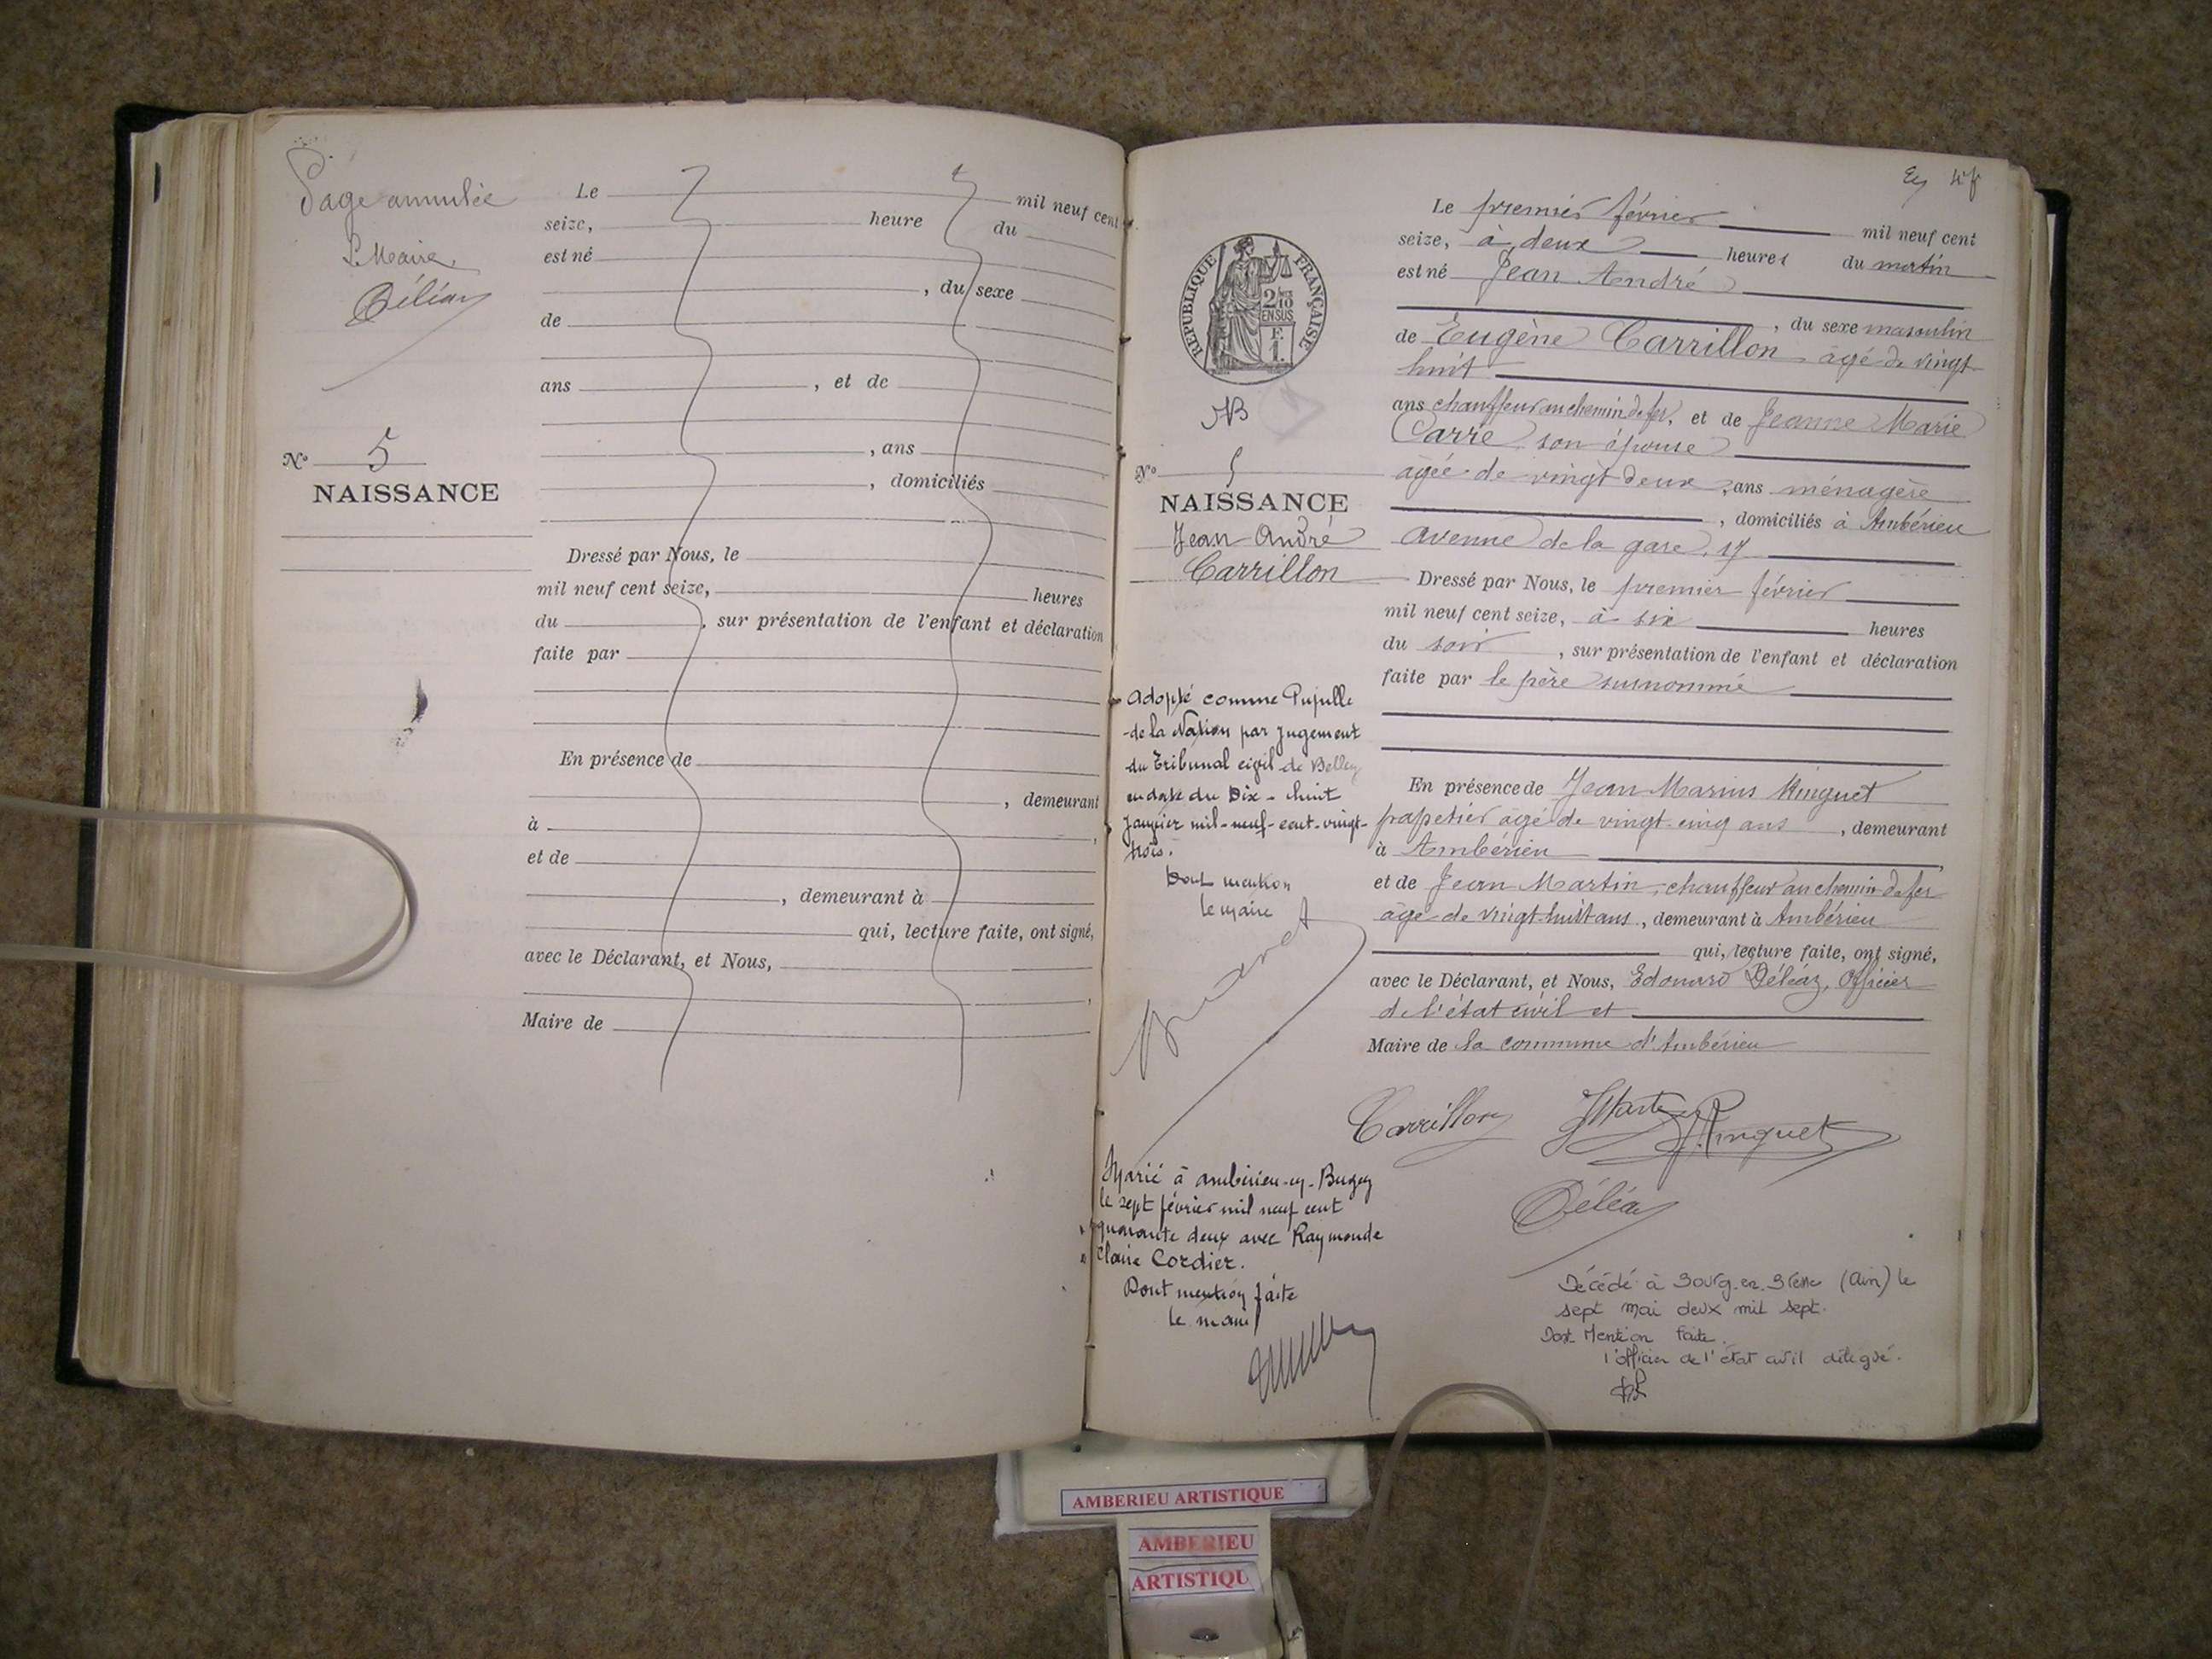 Page annulée
Le Maire
Déléaz
N° 5
NAISSANCE
Le mil neuf cent
seize, heure du
est né
, du sexe
de
ans , et de
, ans
, domiciliés
Dressé par Nous, le
mil neuf cent seize, heures
du , sur présentation de l'enfant et déclaration
faite par
En présence de
, demeurant
à
et de
, demeurant à
qui, lecture faite, ont signé,
avec le Déclarant, et Nous,
Maire de
REPUBLIQUE FRANÇAISE
2/10
EN SUS
F.
1.
N° 5
NAISSANCE
Jean André
Carrillon
Adopté comme Pupille
de la Nation par jugement
du Tribunal civil de Belley
en date du Dix-huit
janvier mil-neuf-cent-vingt-
trois.
Dont mention
le maire
Marié à Ambérieu-en-Bugey
le sept février mil neuf cent
quarante deux avec Raymonde
Claire Cordier.
Dont mention faite
le maire
Le premier février mil neuf cent
seize, à deux heures du matin
est né Jean André
, du sexe masculin
de Eugène Carrillon âgé de vingt
huit
ans chauffeur au chemin de fer, et de Jeanne Marie
Carre son épouse
âgée de vingt deux , ans ménagère
, domiciliés à Ambérieu
avenue de la gare, 17
Dressé par Nous, le premier février
mil neuf cent seize, à six heures
du soir , sur présentation de l'enfant et déclaration
faite par le père susnommé
En présence de Jean Marius Minguet
papetier âgé de vingt cinq ans , demeurant
à Ambérieu
et de Jean Martin, chauffeur au chemin de fer
âgé de vingt huit ans, demeurant à Ambérieu
qui, lecture faite, ont signé,
avec le Déclarant, et Nous, Edouard Déléaz, Officier
de l'état civil et
Maire de la commune d'Ambérieu
Carrillon
Déléaz
Décédé à Bourg.en.Bresse (Ain) le
sept mai deux mil sept.
Dont Mention faite.
l'officier de l'état civil délégué.
AMBERIEU ARTISTIQUE
AMBERIEU
ARTISTIQU